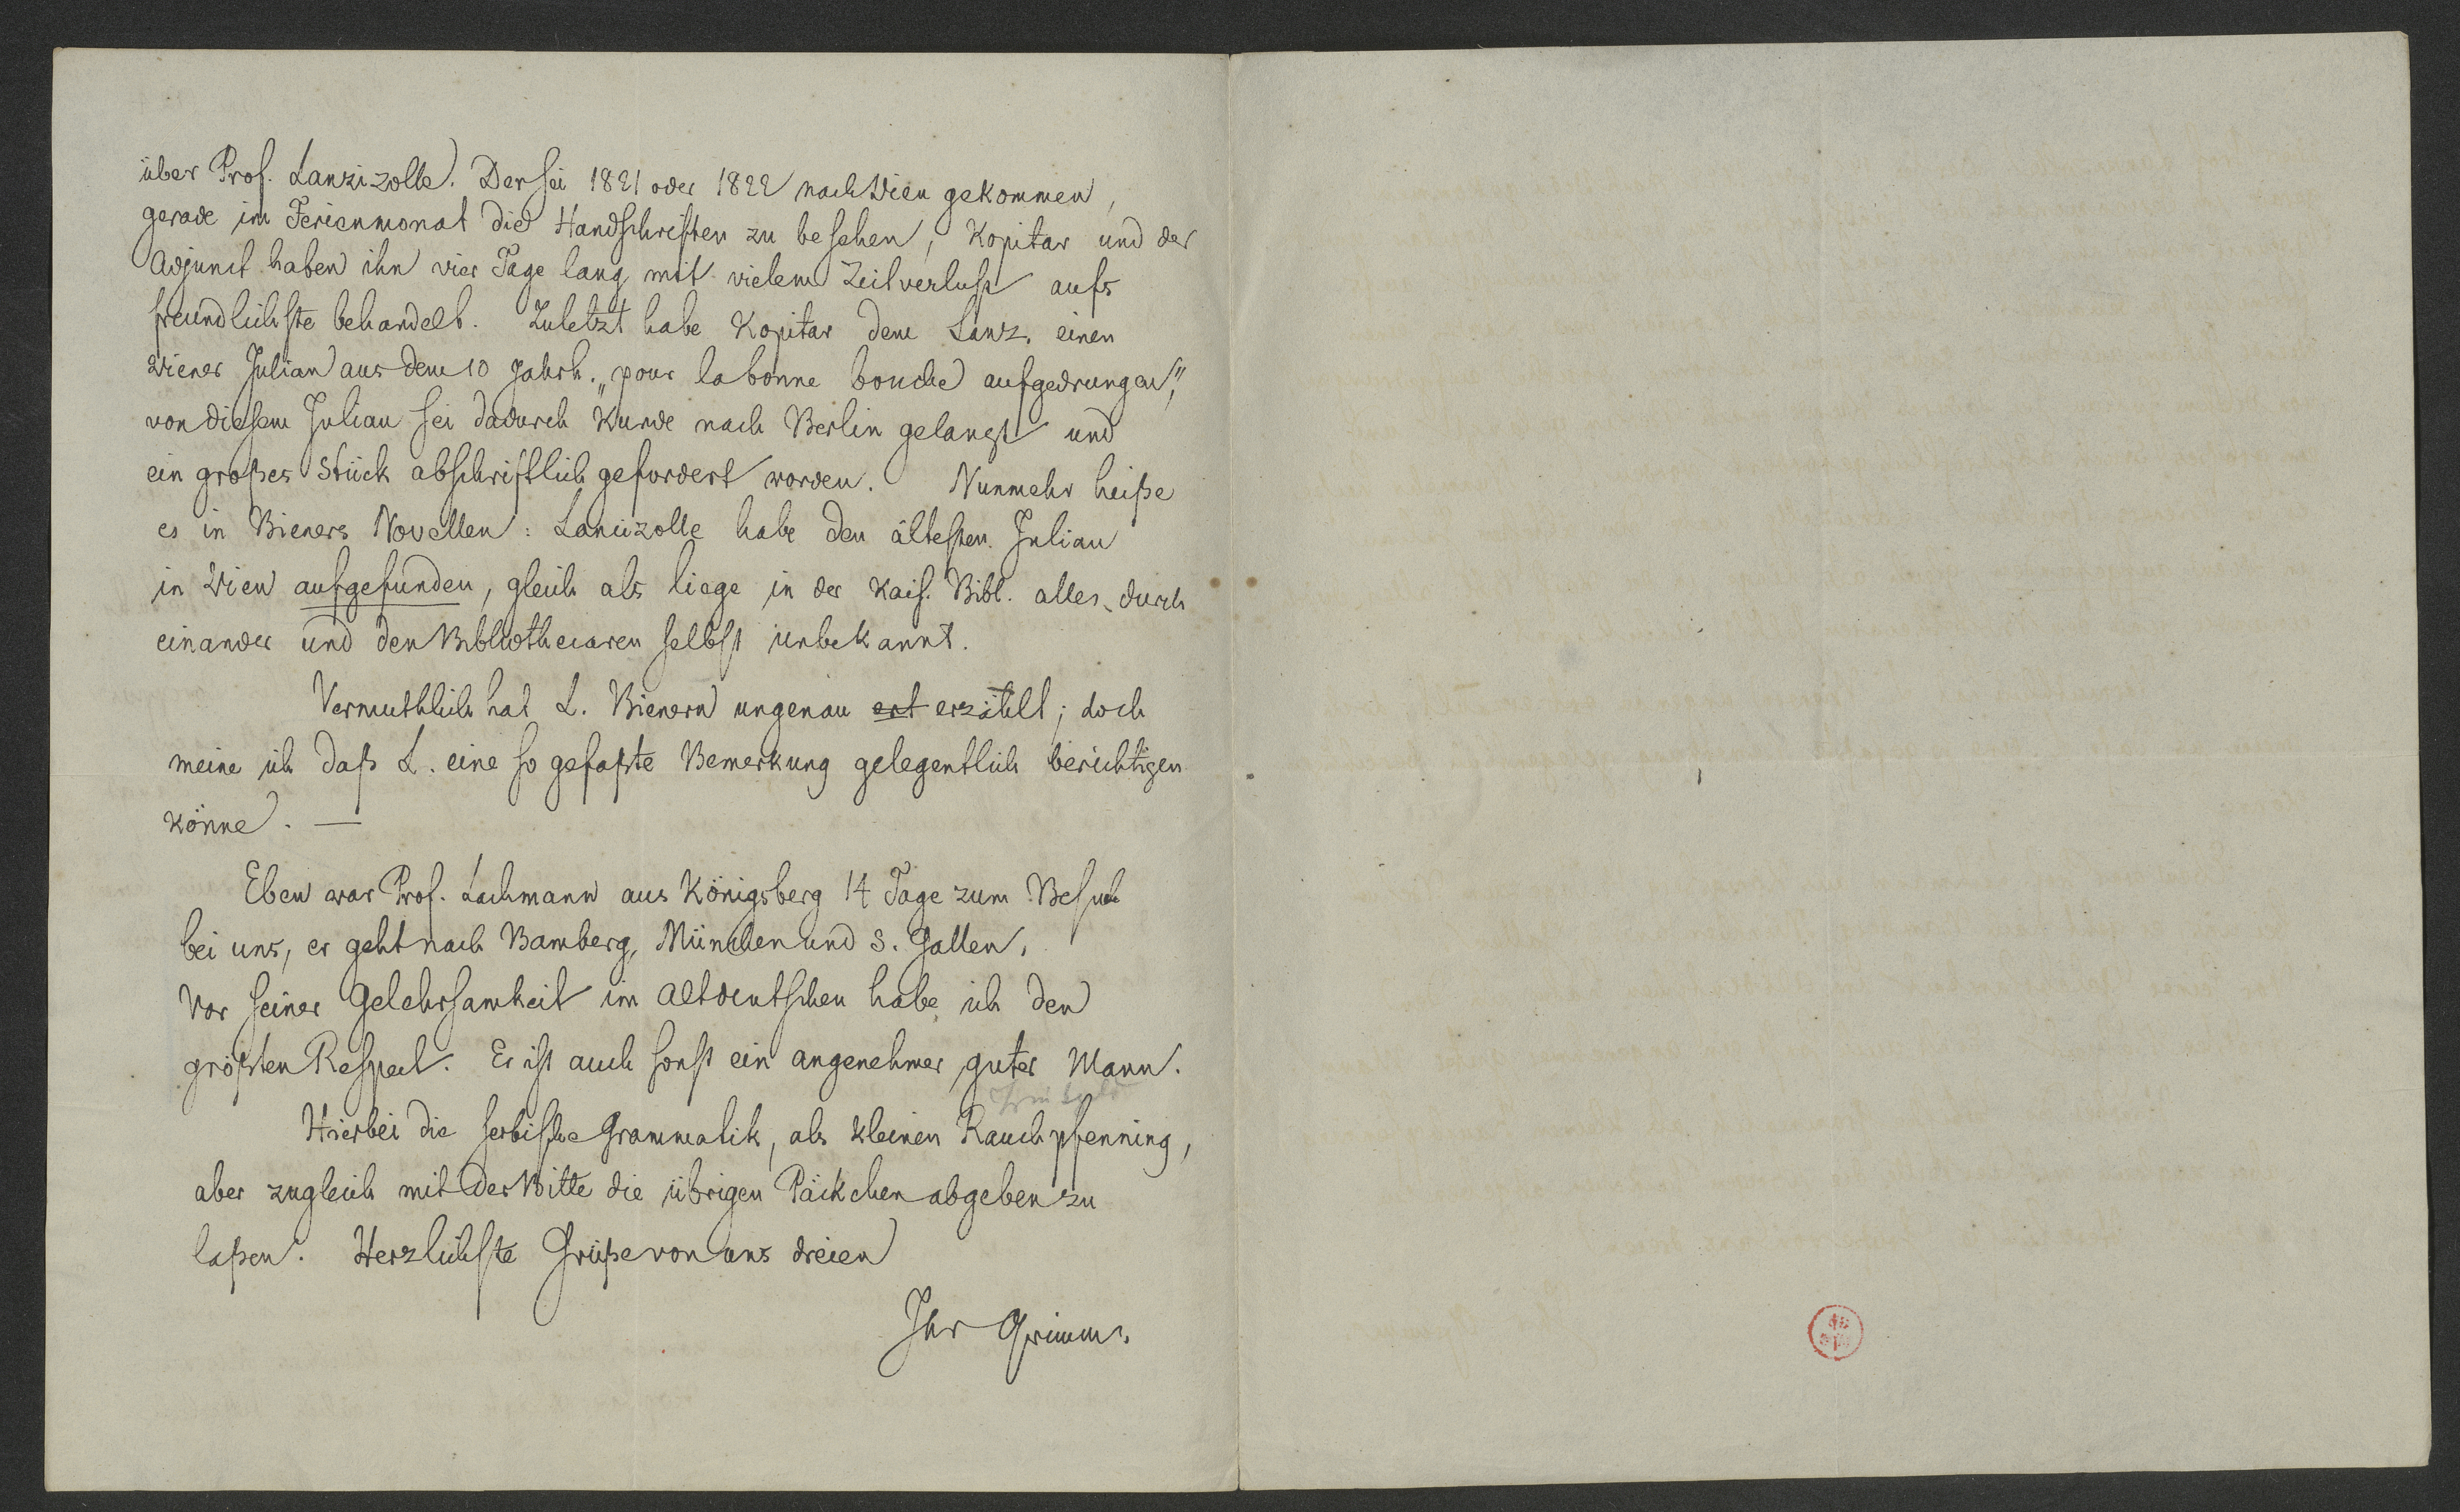 über Prof. Lanzizolle. Der sei 1821 oder 1822 nach Wien gekommen,
gerade im Ferienmonat die Handschriften zu besehen, Kopitar und der
Adjunct haben ihn vier Tage lang mit vielem Zeitverlust aufs
freundlichste behandelt. Zuletzt habe Kopitar dem Lanz. einen
Wiener Julian aus dem 10 Jahrh. „pour la bonne bouche aufgedrungen“,
von diesem Julian sei dadurch Kunde nach Berlin gelangt und
ein großes Stück abschriftlich gefordert worden. Nunmehr heiße
es in Bieners Novellen: Lancizolle habe den ältesten Julian
in Wien aufgefunden, gleich als liege in der Kais. Bibl. alles durch
einander und den Bibliothecaren selbst unbekannt.
Vermuthlich hat L. Bienern ungenau ert erzählt; doch
meine ich daß L. eine so gefaßte Bemerkung gelegentlich berichtigen
könne. —
Eben war Prof. Lachmann aus Königsberg 14 Tage zum Besuch
bei uns, er geht nach Bamberg, München und S. Gallen.
Vor seiner Gelehrsamkeit im Altdeutschen habe ich den
größten Respect. Er ist auch sonst ein angenehmer guter Mann.
Hierbei die serbische Grammatik, als kleinen Rauchpfenning,
aber zugleich mit der Bitte die übrigen Päckchen abgeben zu
laßen. Herzlichste Grüße von uns dreien
Ihr Grimm.